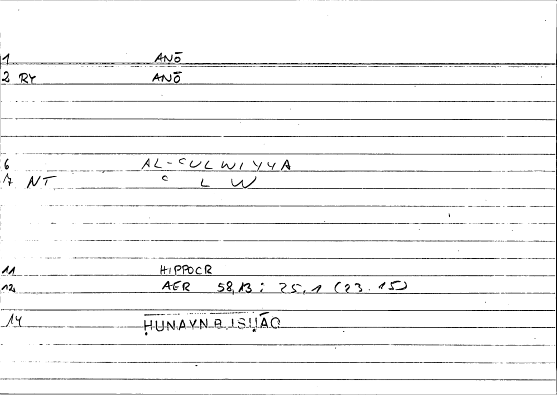 1 ANŌ
2 RY ANŌ
6 AL-ʿULWIYYA
7 NT ʿ L W
11 HIPPOCR
12 AER 58,13 : 25,1 (23.15)
14 ḤUNAYN B.ISḤĀQ